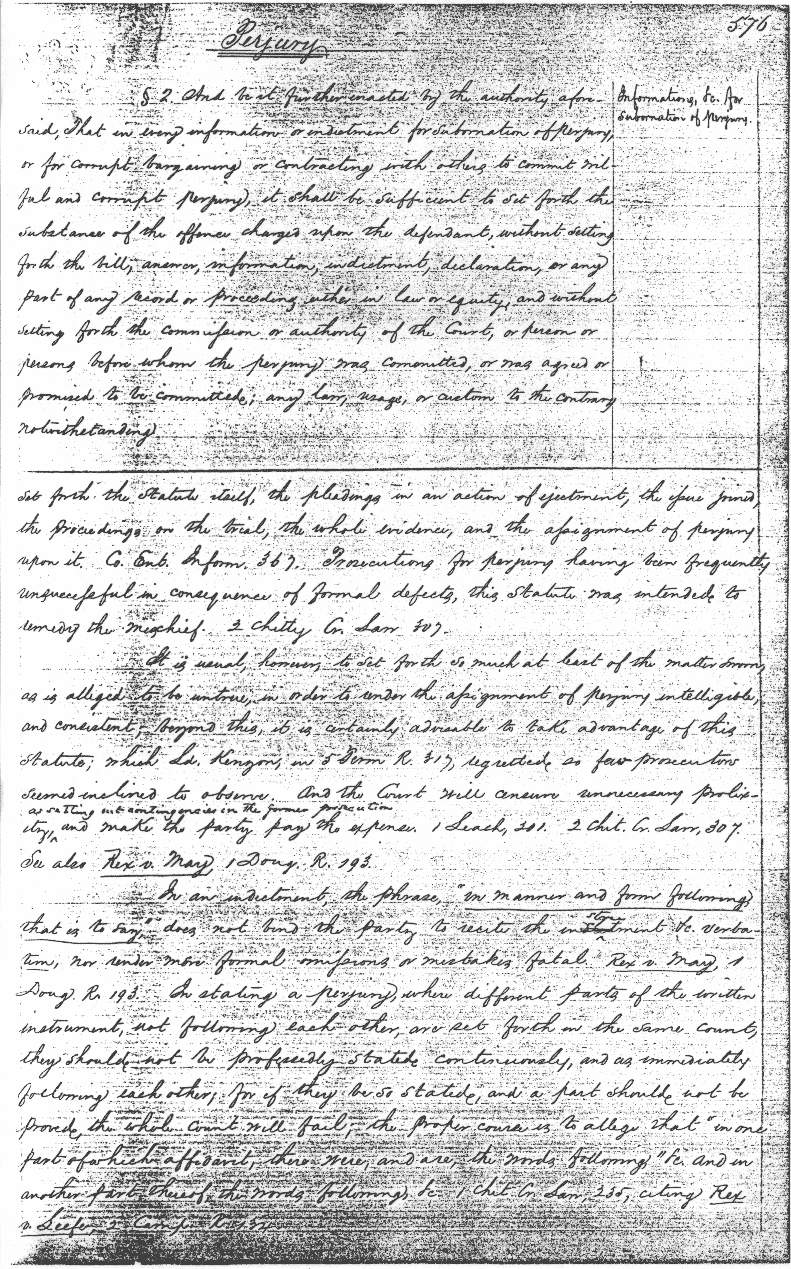 576
Perjury
§ 2. And be it further enacted by the authority afore-
said, That in every information or indictment for subornation of perjury,
or for corrupt bargaining or contracting with others to commit wil-
ful and corrupt perjury, it shall be sufficient to set forth the
substance of the offence charged upon the defendant, without setting
forth the bill, answer, information, indictment, declaration, or any
part of any record or proceeding either in law or equity, and without
setting forth the commission or authority of the Court, or person or
persons before whom the perjury was committed, or was agreed or
promised to be committed; any law, usage, or custom to the contrary
notwithstanding
Informations, &c. for
subornation of perjury.
set forth the Statute itself, the pleadings in an action of ejectment, the issue joined,
the proceedings on the trial, the whole evidence, and the assignment of perjury
upon it. Co. Ent. Inform. 367. Prosecutions for perjury having been frequently
unsuccessful in consequence of formal defects, this Statute was intended to
remedy the mischief. 2 Chitty Cr. Law 307.
It is usual, however, to set forth so much at least of the matter sworn,
as is alleged to be untrue, in order to render the assignment of perjury intelligible,
and consistent; beyond this, it is certainly advisable to take advantage of this
Statute; which Ld. Kenyon, in 5 Term R. 317, regretted so few prosecutors
seemed inclined to observe. And the Court will censure unnecessary prolix-
as setting out contingencies in the former prosecution
ity, and make the party pay the expense. 1 Leach, 201. 2 Chit. Cr. Law, 307.
See also Rex v. May, 1 Doug. R. 193.
In an indictment, the phrase, "in manner and form following,
that is to say," does not bind the party to recite the instrument &c. verba-
tim, nor render mere formal omissions or mistakes fatal. Rex v. May, 1
Doug. R. 193. In stating a perjury, where different parts of the written
instrument, not following each other, are set forth in the same count,
they should not be professedly stated continuously, and as immediately
following each other; for if they be so stated, and a part should not be
proved, the whole count will fail; the proper course is to allege that "in one
part of which affidavit, there were, and are, the words following" &c. and in
another part thereof, the words following, &c. 1 Chit. Cr. Law, 235, citing Rex
v. Leefe, 2 Camp.